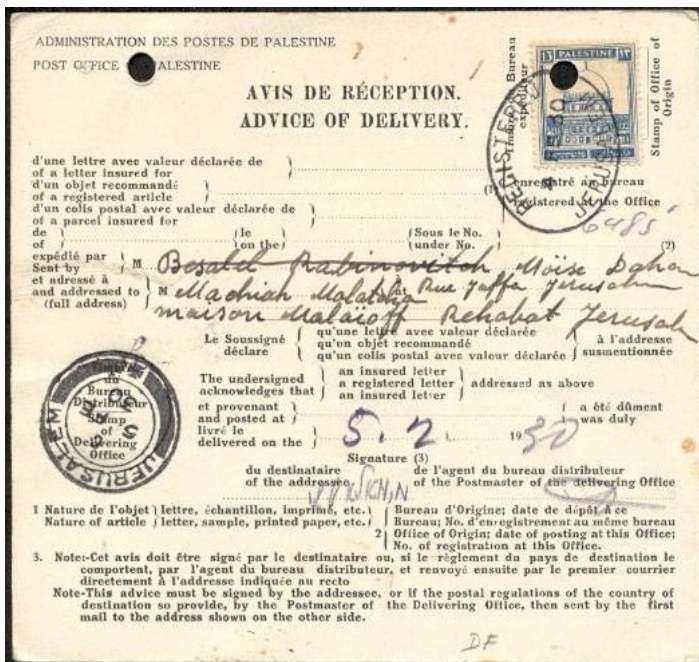 ADMINISTRATION DES POSTES DE PALESTINE
POST OFFICE PALESTINE
AVIS DE RÉCEPTION.
ADVICE OF DELIVERY.
Timbre du Bureau
expéditeur
Stamp of Office of
Origin
13 PALESTINE ١٣
REGISTERED
JERUSALEM
d'une lettre avec valeur déclarée de
of a letter insured for
d'un objet recommandé
of a registered article
(1)
enregistré au bureau
registered at the Office
d'un colis postal avec valeur déclarée de
of a parcel insured for
6485
de
of
le
on the
Sous le No.
under No.
(2)
expédié par
Sent by
M Besalel Rabinovitch Moïse Dahan
et adressé à
and addressed to
(full address)
M Machiah Rue Jaffa Jerusalem
maison Malaïoff Rehabat Jerusal
Le Soussigné
déclare
qu'une lettre avec valeur déclarée
qu'un objet recommandé
qu'un colis postal avec valeur déclarée
à l'adresse
susmentionnée
The undersigned
acknowledges that
an insured letter
a registered letter
an insured letter
addressed as above
et provenant
and posted at
a été dûment
was duly
livré le
delivered on the
5. 2. 1930
Timbre
du
Bureau
Distributeur
Stamp
of
Delivering
Office
JERUSALEM
Signature (3)
du destinataire
of the addressee
de l'agent du bureau distributeur
of the Postmaster of the delivering Office
1 Nature de l'objet) lettre, échantillon, imprimé, etc.)
Nature of article ) letter, sample, printed paper, etc.)
2
Bureau d'Origine; date de dépôt à ce
Bureau; No. d'enregistrement au même bureau
Office of Origin; date of posting at this Office;
No. of registration at this Office.
3. Note:-Cet avis doit être signé par le destinataire ou, si le règlement du pays de destination le
comportent, par l'agent du bureau distributeur, et renvoyé ensuite par le premier courrier
directement à l'adresse indiquée au recto
Note-This advice must be signed by the addressee, or if the postal regulations of the country of
destination so provide, by the Postmaster of the Delivering Office, then sent by the first
mail to the address shown on the other side.
DF